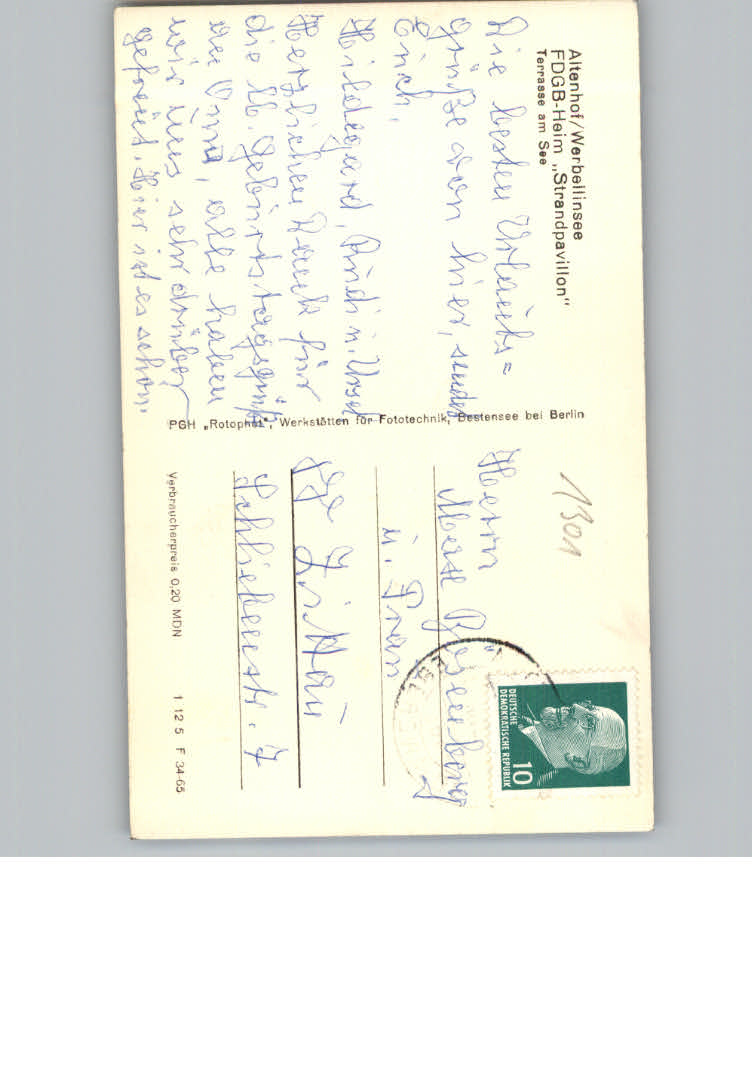 Altenhof/Werbellinsee
FDGB-Heim „Strandpavillon"
Terrasse am See
Die besten Urlaubs=
grüße von hier, senden
Euch,
Hildegard, Rudi u. Ursel
Herzlichen Dank für
die lb. Geburtstagsgrüße
an Omi, alle haben
wir uns sehr drüber
gefreut. Hier ist es schön.
PGH „Rotophot", Werkstätten für Fototechnik, Bestensee bei Berlin
1301
Herrn
Max Rosenberg
u. Frau
Zittau
Schliebenstr. 7
DEUTSCHE
DEMOKRATISCHE REPUBLIK
10
Verbraucherpreis 0,20 MDN
1 12 5 F 34-65